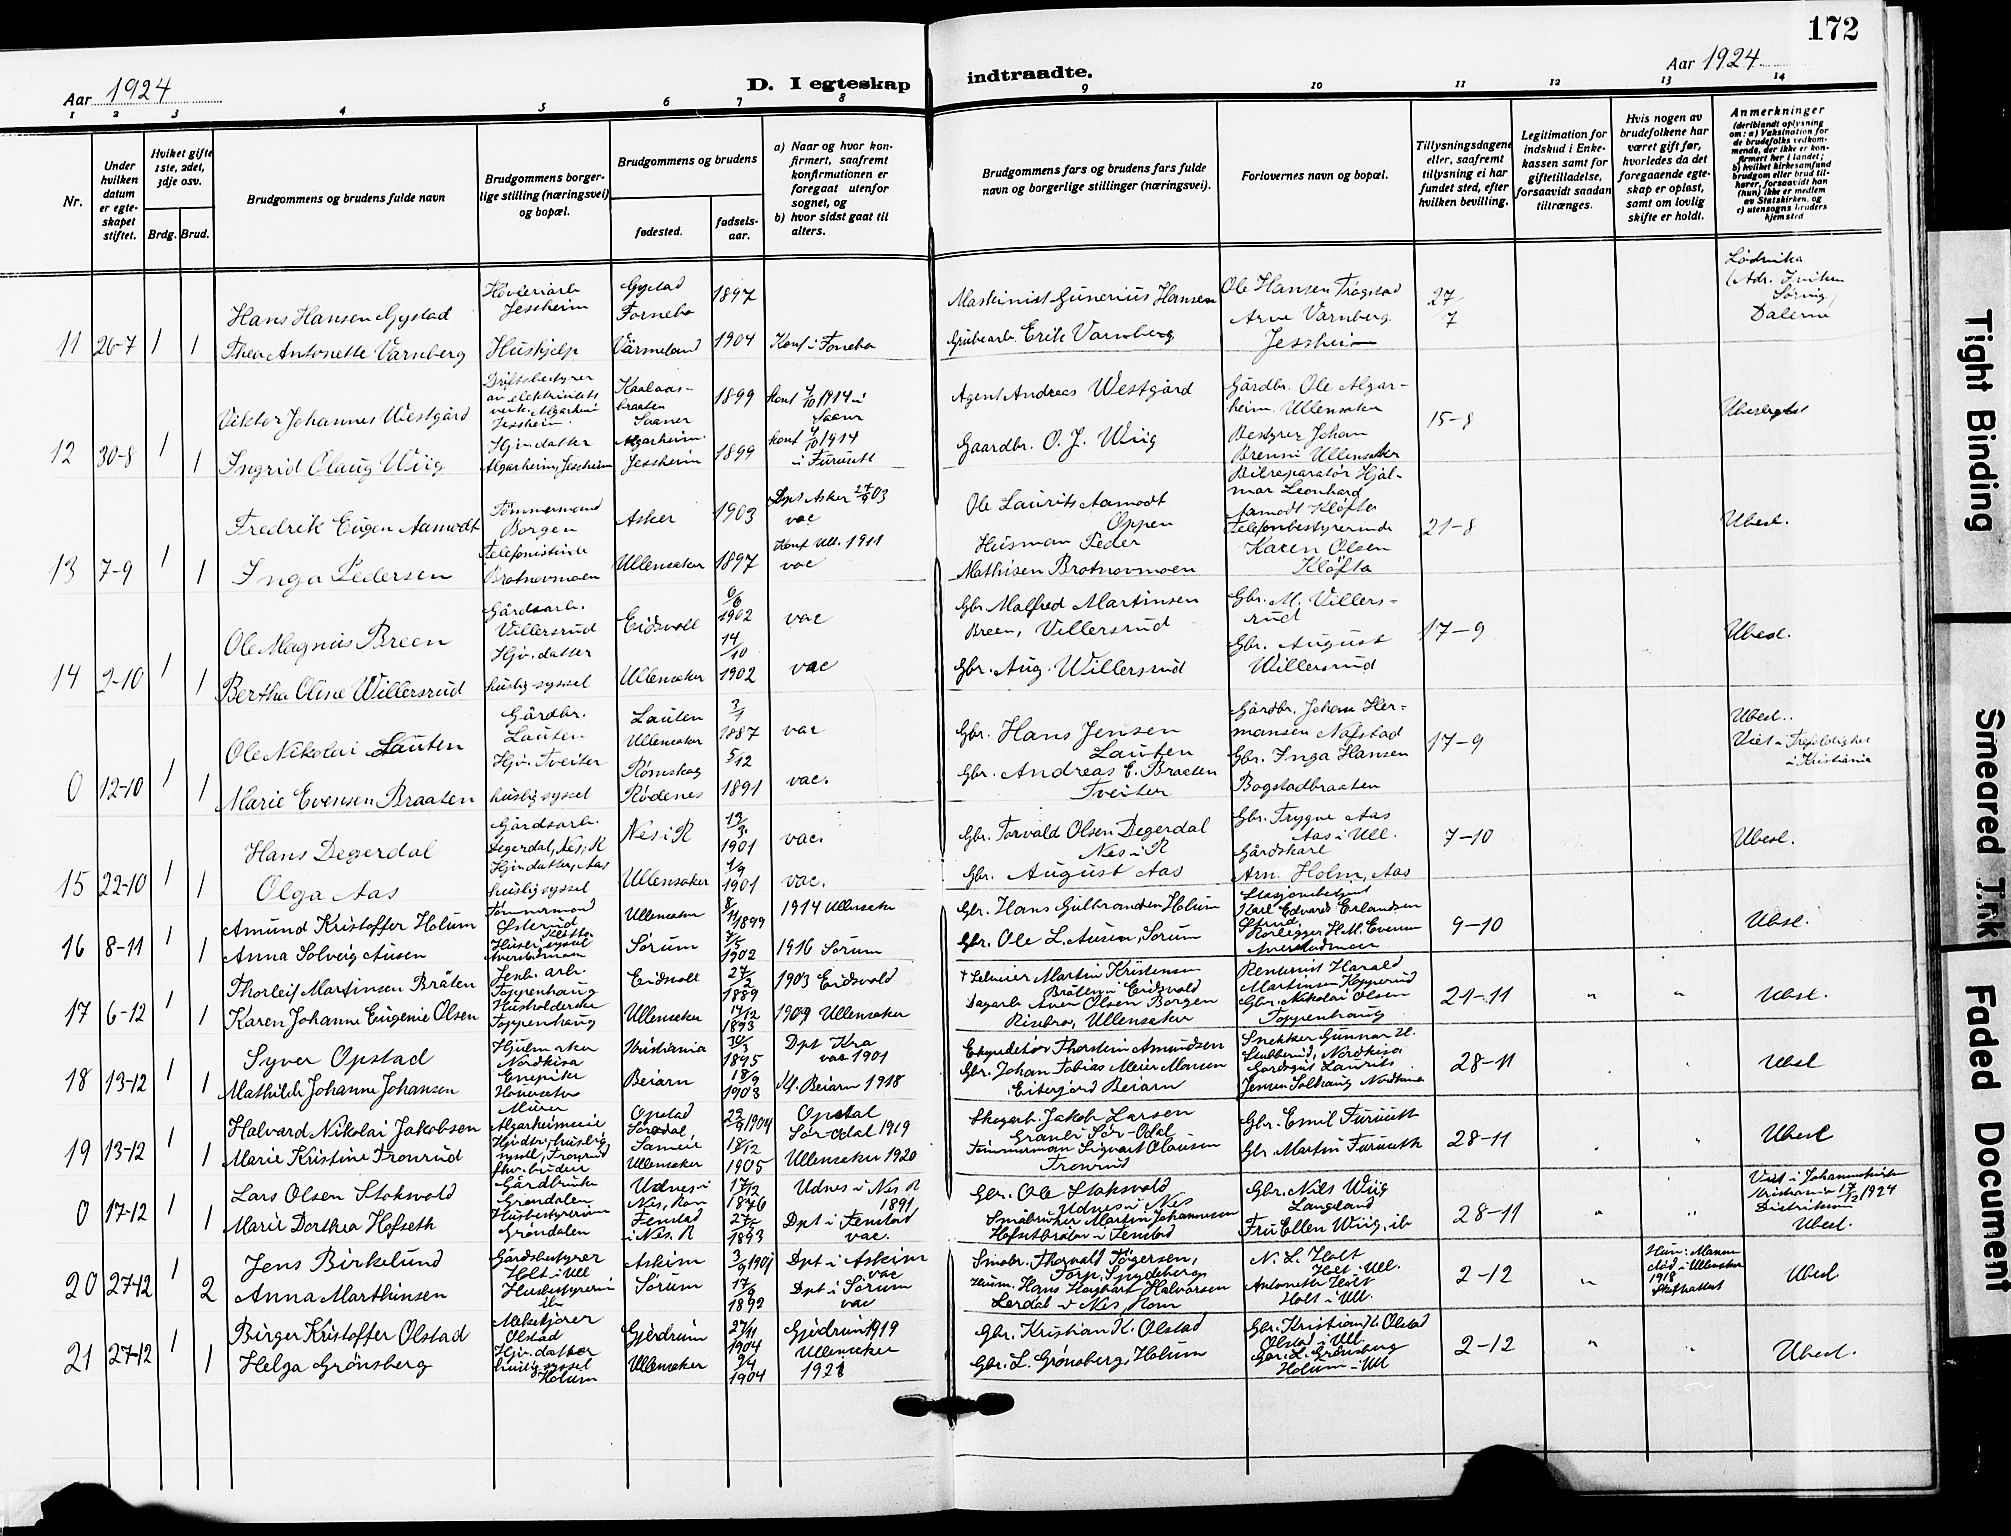 172
Aar 1924
D. I egteskap indtraadte.
Aar 1924
1 2 3 4 5 6 7 8 9 10 11 12 13 14
Nr.
Under hvilken datum er egteskapet stiftet.
Hviket gifte 1ste, 2det, 3dje osv.
Brdg. Brud.
Brudgommens og brudens fulde navn
Brudgommens borgerlige stilling (næringsvei) og bopæl.
Brudgommens og brudens
fødested.
fødselsaar.
a) Naar og hvor konfirmert, saafremt konfirmationen er foregaat utenfor sognet, og
b) hvor sidst gaat til alters.
Brudgommens fars og brudens fars fulde navn og borgerlige stillinger (næringsvei).
Forlovernes navn og bopæl.
Tillysningsdagene eller, saafremt tillysning ei har fundet sted, efter hvilken bevilling.
Legitimation for indskud i Enkekassen samt for giftetilladelse, forsaavidt saadan tiltrænges.
Hvis nogen av brudefolkene har været gift før, hvorledes da det foregaaende egteskap er opløst, samt om lovlig skifte er holdt.
Anmerkninger
(deriblandt oplysning om: a) Vaksination for de brudefolks vedkommende, der ikke er konfirmert her i landet; b) hvilket kirkesamfund brudgom eller brud tilhører, forsaavidt han (hun) ikke er medlem av Statskirken, og c) utensogns bruders hjemsted
11 26-7 1 1
Hans Hansen Gystad
Thea Antonette Varnberg
Høvleriarb. Jessheim
Hushjelp
Gystad
Fornebo
Värmeland
1897
1904
Konf i Fornebo
Maskinist Gunerius Hansen
Grubearb. Erik Varnberg
Ole Hansen Trøgstad
Arve Varnberg
Jessheim
27/7
Dalerne
12 30-8 1 1
Viktor Johannes Westgård
Ingrid Olaug Wiig
Driftsbestyrer av elektricitetsverk. Algarheim Jessheim.
Hjv. datter
Algarheim, Jessheim
Algarheim.
Jessheim
1899
1899
konf 4/10 1914 i
konf 4/10 1914
i Furuset
Agent Andreas Westgård
Gaardbr. O. J. Wiig
Gårdbr. Ole Algarheim Ullensaker
Bestyrer Johan Brenni Ullensaker
15-8
Ubeslegtet
13 7-9 1 1
Fredrik Eugen Aamodt
Inga Pedersen
Tømmermand
Borgen
Telefonistinde
Brotnovmoen
Asker
Ullensaker
1903
1897
Dpt Asker 27/9 03
vac
Konf Ull. 1911
vac
Ole Laurits Aamodt
Oppen
Husman Peder
Mathisen Brotnovmoen
Bilreparatør Hjalmar Leonhard
Aamodt Kløfta
Telefonbestyrerinde
Karen Olsen
Kløfta
21-8
Ubesl.
14 2-10 1 1
Ole Magnus Breen
Bertha Oline Willersrud
Gårdsarb.
Villersrud
Hjv. datter
huslig syssel
Eidsvoll
Ullensaker
6/6
1902
14/10
1902
vac
vac
Gbr. Malfred Martinsen
Breen, Villersrud
Gbr. Aug. Willersrud
Gbr. M. Villersrud
Gbr. August
Willersrud
17-9
Ubesl.
0 12-10 1 1
Ole Nikolai Lauten
Marie Evensen Braaten
Gårdbr.
Lauten
Hjv. Tveiter
huslig syssel
Lauten
Ullensaker
Rømskog
Rødenes
3/1
1887
5/12
1891
vac
vac.
Gbr. Hans Jensen
Lauten
Gbr. Andreas E. Braaten
Tveiter
Gårdbr. Johan Hermansen Nafstad
Gbr. Inga Hansen
Bogstadbraaten
17-9
Ubesl..
Viet i Trefoldighet
i Kristiania
15 22-10 1 1
Hans Degerdal
Olga Aas
Gårdsarb.
Degerdal, Nes, R
Hjv. datter, Aas
huslig syssel
Nes i R
Ullensaker
13/3
1901
1/9
1901
vac.
vac.
Gbr. Torvald Olsen Degerdal
Nes i R
Gbr. August Aas
Gbr. Trygve Aas
Aas i Ull.
Gårdskarl
Arn. Holm, Aas
7-10
Ubesl.
16 8-11 1 1
Amund Kristoffer Holum
Anna Solveig Ausen
Tømmermand
Husligsyssel
Ullensaker
Sørum
8/11 1899
7/5
1902
1914 Ullensaker
1916 Sørum
Gbr. Hans Gulbrandsen Holum
Gbr. Ole L. Ausen, Sørum
Karl Edvard Erlandsen
Rørlegger H.M. Evensen
9-10
Ubsl.
17 6-12 1 1
Thorleif Martinsen Bråten
Karen Johanne Eugenie Olsen
Jenb. arb.
Toppenhaug
Husholderske
Toppenhaug
Eidsvoll
Ullensaker
27/2
1889
17/12
1893
1903 Eidsvold
1909 Ullensaker
Martin Kristensen
Bråten i Eidsvold
Dagarb. Aven Olsen Borgen
Risebro, Ullensaker
Rentenist Harald
Martinsen Kopperud
Gbr. Nikolai Olsen
Toppenhaug
21-11
"
"
Ubsl.
18 13-12 1 1
Syver Opstad
Mathilde Johanne Johansen
Hjulmaker
Nordkisa
Enepike
Kristiania
Beiarn
30/3
1895
18/9
1903
Dpt Kra
vac 1901
Kf. Beiarn 1918
Ekspeditør Thorstein Amundsen
Gbr. Johan Tobias Meier Monsen
Eiterjord Beiarn
Snekker Gunnar H.
Stubberud, Nordkisa
Gardsgut Laurits
Jensen Solhaug Nordkisa
28-11
Ubesl
19 13-12 1 1
Halvard Nikolai Jakobsen
Marie Kristine Fronrud
Murer
Hjvdtr, huslig
syssel, Fronrud
Opstad
Sørodal
Sameie
Ullensaker
22/3 1904
18/12
1905
Opstal
Sør-Odal 1919
Ullensaker 1920
Skogarb. Jakob Larsen
Granli Sør-Odal
Tømmerman Sigvart Olausen
Fronrud
Gbr. Emil Furuseth
Gbr Martin Furuseth
28-11
Ubesl
0 17-12 1 1
Lars Olsen Stoksvold
Marie Dorthea Hofseth
Gårdbruker
Grøndalen
Husbestyrerinne
Grøndalen
Udnes i
Nes, Rom
Fenstad
i Nes. R
17/12
1876
27/5
1893
Udnes i Nes R
1891
Dpt i Fenstad
vac.
Gbr. Ole Stoksvold
Udnes i Nes
Småbruker Martin Johannesen
Hofsetbråten i Fenstad
Gbr. Nils Wiig
Langeland
Fru Ellen Wiig, ib
28-11
"
"
Viet i Johanneskirken
Kristiania 17/12 1924
Ubesl.
20 27-12 1 2
Jens Birkelund
Anna Marthinsen
Gårdsbestyrer
Holt i Ull
Husbestyrerin
ibi
Askim
Sørum
3/9 1901
17/9
1892
Dpt i Askim
vac
Dpt i Sørum
vac
Småbr. Thorvald Tøgersen,
Torp, Spydeberg
Husm. Hans Hagbart Halvorsen
Lerdal i Nes, Rom
N. L. Holt
Holt i Ull.
Antonette Holt
Holt i Ull.
2-12
"
Hun: Mannen
død i Ullensaker
1918
Ubesl
21 27-12 1 1
Birger Kristoffer Olstad
Helga Grønsberg
Melkekjører
Olstad
Hjv. datter
huslig syssel
Holum
Gjerdrum
Ullensaker
27/11
1904
9/4
1904
Gjerdrum 1919
Ullensaker
1921
Gbr. Kristian K. Olstad
Gbr. L. Grønsberg, Holum
Gbr. Kristian K. Olstad
Olstad i Ull.
Gbr. L. Grønsberg
Holum i Ull
2-12
"
"
Ubesl.
Tight Binding
Smeared Ink
Faded Document